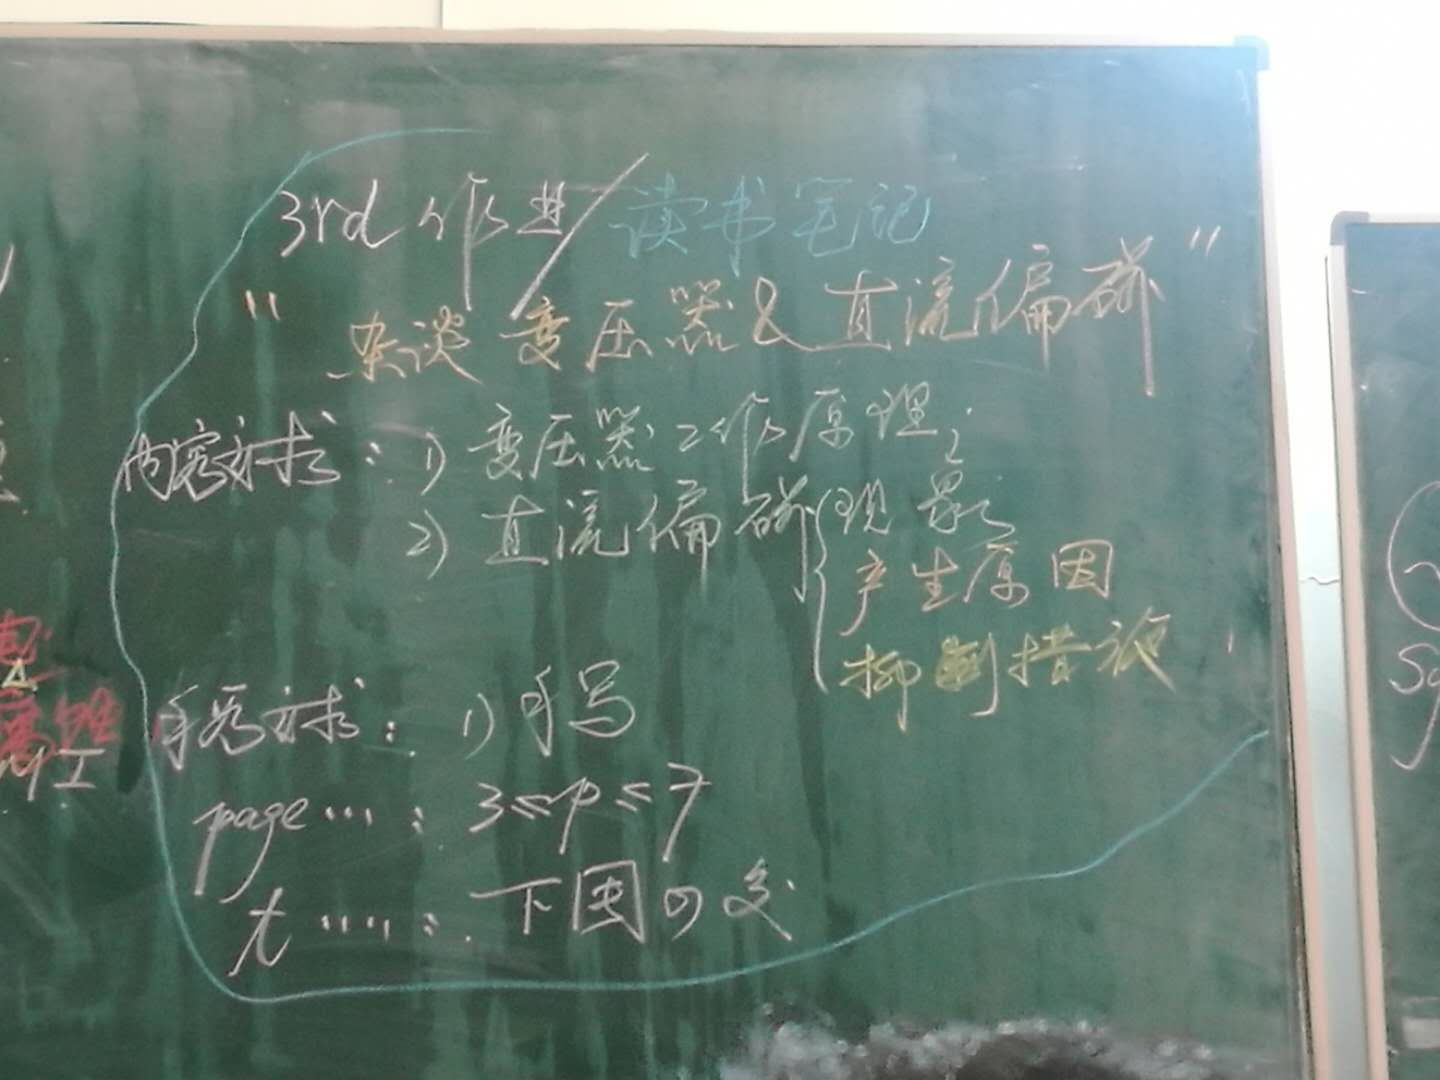 3rd 作业/读书笔记
"杂谈变压器&直流偏磁"
内容要求：1) 变压器工作原理；
2) 直流偏磁{现象
产生原因
抑制措施
手写要求：1) 手写
page……：3≤p≤7
t……：下周四交